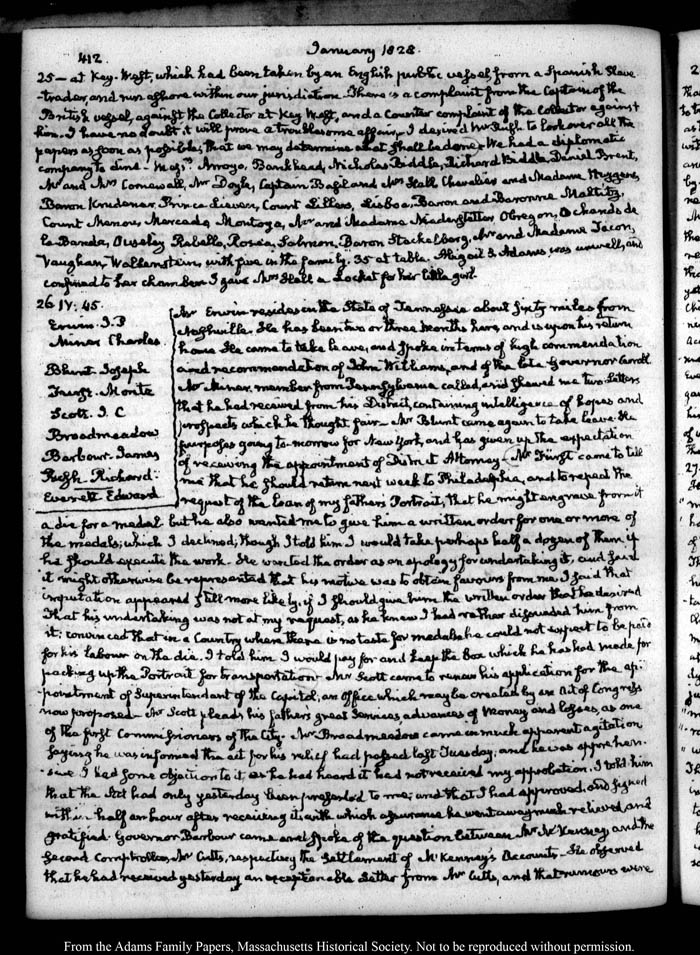 412.
January 1828.
25— at Key-West, which had been taken by an English public vessel from a Spanish Slave
-trader, and run ashore within our jurisdiction. There is a complaint from the Captain of the
British vessel, against the Collector at Key West, and a Counter complaint of the Collector against
him. I have no doubt it will prove a troublesome affair. I desired Mr Rush to look over all the
papers as soon as possible, that we may determine what shall be done. We had a diplomatic
company to dine— Messrs. Arroyo, Bankhead, Nicholas Biddle, Richard Biddle, Daniel Brent,
Mr and Mrs Cornewall, Mr Doyle, Captain Basil and Mrs Hall Chevalier and Madame Huygens,
Baron Krudener, Prince Lieven, Count Lillers, Lisboa, Baron and Baronne Maltitz,
Count Menou, Mercado, Montoya, Mr and Madame Niederstetter Obregon, Ochando de
la Banda, Ouseley Rebello, Rosia, Salmon, Baron Stackelberg, Mr and Madame Tacon,
Vaughan, Wallenstein, with five in the family. 35 at table. Abigail S. Adams was unwell, and
confined to her chamber. I gave Mrs Hall a Locket for her little girl.
26. IV: 45.
Erwin. J. P
Miner Charles.
Blunt. Joseph
Furst. Moritz
Scott. I. C
Broadmeadow
Barbour. James
Rush Richard
Everett Edward
Mr Erwin resides in the State of Tennessee about sixty miles from
Nashville. He has been two or three months here, and is upon his return
home. He came to take leave, and spoke in terms of high commendation
and recommendation of John Williams, and of the late Governor Carroll
Mr Miner. member from Pennsylvania called, and shewed me two Letters
that he had received from his District, containing intelligence of hopes and
prospects which he thought fair— Mr Blunt came again to take leave. He
purposes going to-morrow for New York, and has given up the expectation
of receiving the appointment of District Attorney. Mr Furst came to tell
me that he should return next week to Philadelphia, and to repeat the
request of the loan of my father's Portrait, that he might engrave from it
a die for a medal but he also wanted me to give him a written order for one or more of
the medals; which I declined, though I told him I would take perhaps half a dozen of them if
he should execute the work. He wanted the order as an apology for undertaking it, and said
it might otherwise be represented that his motive was to obtain favours from me. I said that
imputation appeared still more likely, if I should give him the written order that he desired
That his undertaking was not at my request, as he knew I had rather dissuaded him from
it; convinced that in a Country where there is no taste for medals he could not expect to be paid
for his labour on the die. I told him I would pay for and keep the Box which he has had made for
packing up the Portrait for transportation. Mr Scott came to renew his application for the ap-
-pointment of Superintendent of the Capitol, an office which may be created by an Act of Congress
now proposed— Mr Scott pleads his father's great Services, advances of Money and losses, as one
of the first Commissioners of the City. Mr Broadmeadow came in much apparent agitation
saying he was informed the act for his relief had passed last Tuesday; and he was apprehen-
-sive I had some objection to it, as he had heard it had not received my approbation. I told him
that the Act had only yesterday been presented to me; and that I had approved, and signed
within half an hour after receiving it with which assurance he went away much relieved, and
gratified. Governor Barbour came and spoke of the question between Mr McKenney and the
Second Comptroller Mr Cutts, respecting the Settlement of McKenney's Accounts— He observed
that he had received yesterday an exceptionable Letter from Mr Cutts, and that rumours were
From the Adams Family Papers, Massachusetts Historical Society. Not to be reproduced without permission.